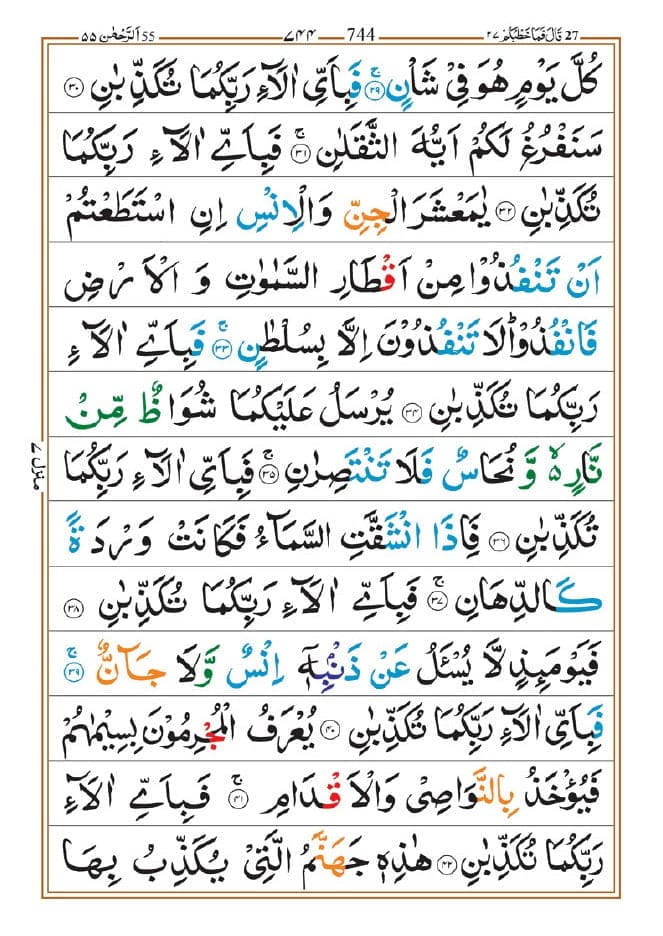 27 قَالَ فَمَا خَطْبُكُمْ ٢٧ 744 ٧٤٤ 55 اَلرَّحْمٰن ٥٥
كُلَّ يَوْمٍ هُوَ فِیْ شَاْنٍ ۚ﴿۲۹﴾ فَبِاَیِّ اٰلَآءِ رَبِّكُمَا تُكَذِّبٰنِ ﴿۳۰﴾
سَنَفْرُغُ لَكُمْ اَیُّهَ الثَّقَلٰنِ ۚ﴿۳۱﴾ فَبِاَیِّ اٰلَآءِ رَبِّكُمَا
تُكَذِّبٰنِ ﴿۳۲﴾ یٰمَعْشَرَ الْجِنِّ وَالْاِنْسِ اِنِ اسْتَطَعْتُمْ
اَنْ تَنْفُذُوْا مِنْ اَقْطَارِ السَّمٰوٰتِ وَ الْاَرْضِ
فَانْفُذُوْا ؕ لَا تَنْفُذُوْنَ اِلَّا بِسُلْطٰنٍ ۚ﴿۳۳﴾ فَبِاَیِّ اٰلَآءِ
رَبِّكُمَا تُكَذِّبٰنِ ﴿۳۴﴾ یُرْسَلُ عَلَیْكُمَا شُوَاظٌ مِّنْ
نَّارٍ ۙ۬ وَّ نُحَاسٌ فَلَا تَنْتَصِرٰنِ ۚ﴿۳۵﴾ فَبِاَیِّ اٰلَآءِ رَبِّكُمَا
تُكَذِّبٰنِ ﴿۳۶﴾ فَاِذَا انْشَقَّتِ السَّمَآءُ فَكَانَتْ وَرْدَةً
كَالدِّهَانِ ۚ﴿۳۷﴾ فَبِاَیِّ اٰلَآءِ رَبِّكُمَا تُكَذِّبٰنِ ﴿۳۸﴾
فَیَوْمَىِٕذٍ لَّا یُسْـَٔلُ عَنْ ذَنْۢبِهٖۤ اِنْسٌ وَّلَا جَآنٌّ ۚ﴿۳۹﴾
فَبِاَیِّ اٰلَآءِ رَبِّكُمَا تُكَذِّبٰنِ ﴿۴۰﴾ یُعْرَفُ الْمُجْرِمُوْنَ بِسِیْمٰىهُمْ
فَیُؤْخَذُ بِالنَّوَاصِیْ وَالْاَقْدَامِ ۚ﴿۴۱﴾ فَبِاَیِّ اٰلَآءِ
رَبِّكُمَا تُكَذِّبٰنِ ﴿۴۲﴾ هٰذِهٖ جَهَنَّمُ الَّتِیْ یُكَذِّبُ بِهَا
منزل ٧